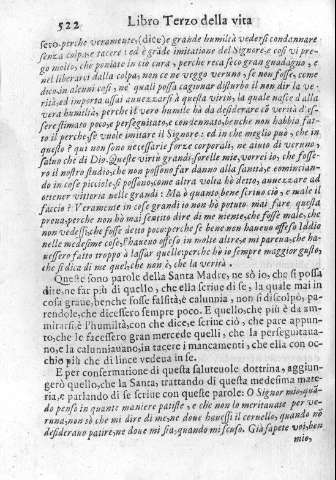 522 Libro Terzo della vita
sero, perche veramente, (dice) e grande humiltà vedersi condannare
senza colpa, e tacere: ed è gràde imitatione del Signore, e così vi pre-
go molto, che poniate in ciò cura, perche reca seco gran guadagno, e
nel liberarsi dalla colpa, non ce ne veggo veruno, se non fosse, come
dico, in alcuni casi, ne' quali possa cagionar disturbo il non dir la ve-
rità, ed importa assai auuezzarsi à questa virtù, la quale nasce dalla
vera humiltà, perche il vero humile hà da desiderare cò verità d'es-
sere stimato poco, e perseguitato, e condennato, benche non habbia fat-
to il perche, se vuole imitare il Signore: ed in che meglio può, che in
questo? qui non sono necessarie forze corporali, ne aiuto di veruno,
saluo che di Dio. Queste virtù grandi, sorelle mie, vorrei io, che fosse-
ro il nostro studio, che non possono far danno alla sanità, e cominciam-
do in cose picciole, si possono, come altra volta hò detto, annezzare ad
ottener vittoria nelle grandi: Ma ò quanto bene scriuo ciò, e male il
faccio? Veramente in cose grandi io non hò potuto mai fare questa
proua, perche non hò mai sentito dire di me niente, che fosse male, che
non vedessi, che fosse detto poco: perche se bene non haueuo offeso Iddio
nelle medesime cose, l'haueuo offeso in molte altre, e mi pareua, che ha-
uessero fatto troppo à lasciar quelle: perche hò io sempre maggior gusto,
che si dica di me quel, che non è, che la verità.
Queste sono parole della Santa Madre, ne sò io, che si possa
dire, ne far più di quello, che ella scriue di se, la quale mai in
cosa graue, benche fosse falsità, è calunnia, non si discolpò, pa-
rendole, che dicessero sempre poco. E quello, che più è da am-
mirarsi è l'humiltà, con che dice, e scriue ciò, che pare appun-
to, che le facessero gran mercede quelli, che la perseguitaua-
no, e la calunniauano, in tacere i mancamenti, che ella con oc-
chio più che di lince vedeua in se.
E per confermatione di questa saluteuole dottrina, aggiun-
gerò quello, che la Santa, trattando di questa medesima mate-
ria, e parlando di se scriue con queste parole: O Signor mio, quá-
do penso in quante maniere patiste, e che non lo meritauate per ve-
runa, non sò che mi dire di me, ne doue hauessi il ceruello, quando nõ
desiderauo patire, ne doue mi sia, quando mi scuso. Già sapete voi, ben
mio,